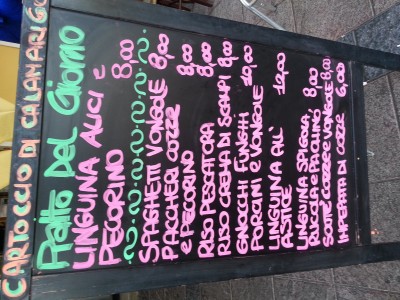 CARTOCCIO DI CALAMARI 6,00
Piatto Del Giorno
LINGUINA ALICI e
PECORINO 8,00
SPAGHETTI VONGOLE 8,00
PACCHERI COZZE
e PECORINO 8,00
RISO PESCATORA 8,00
RISO CREMA DI SCAMPI 8,00
GNOCCHI FUNGHI
PORCINI e VONGOLE 10,00
LINGUINA ALL'
ASTICE 12,00
LINGUINA SPIGOLA,
RUCOLA e PACHINO 8,00
SOUTÉ COZZE e VONGOLE 8,00
IMPEPATA DI COZZE 6,00